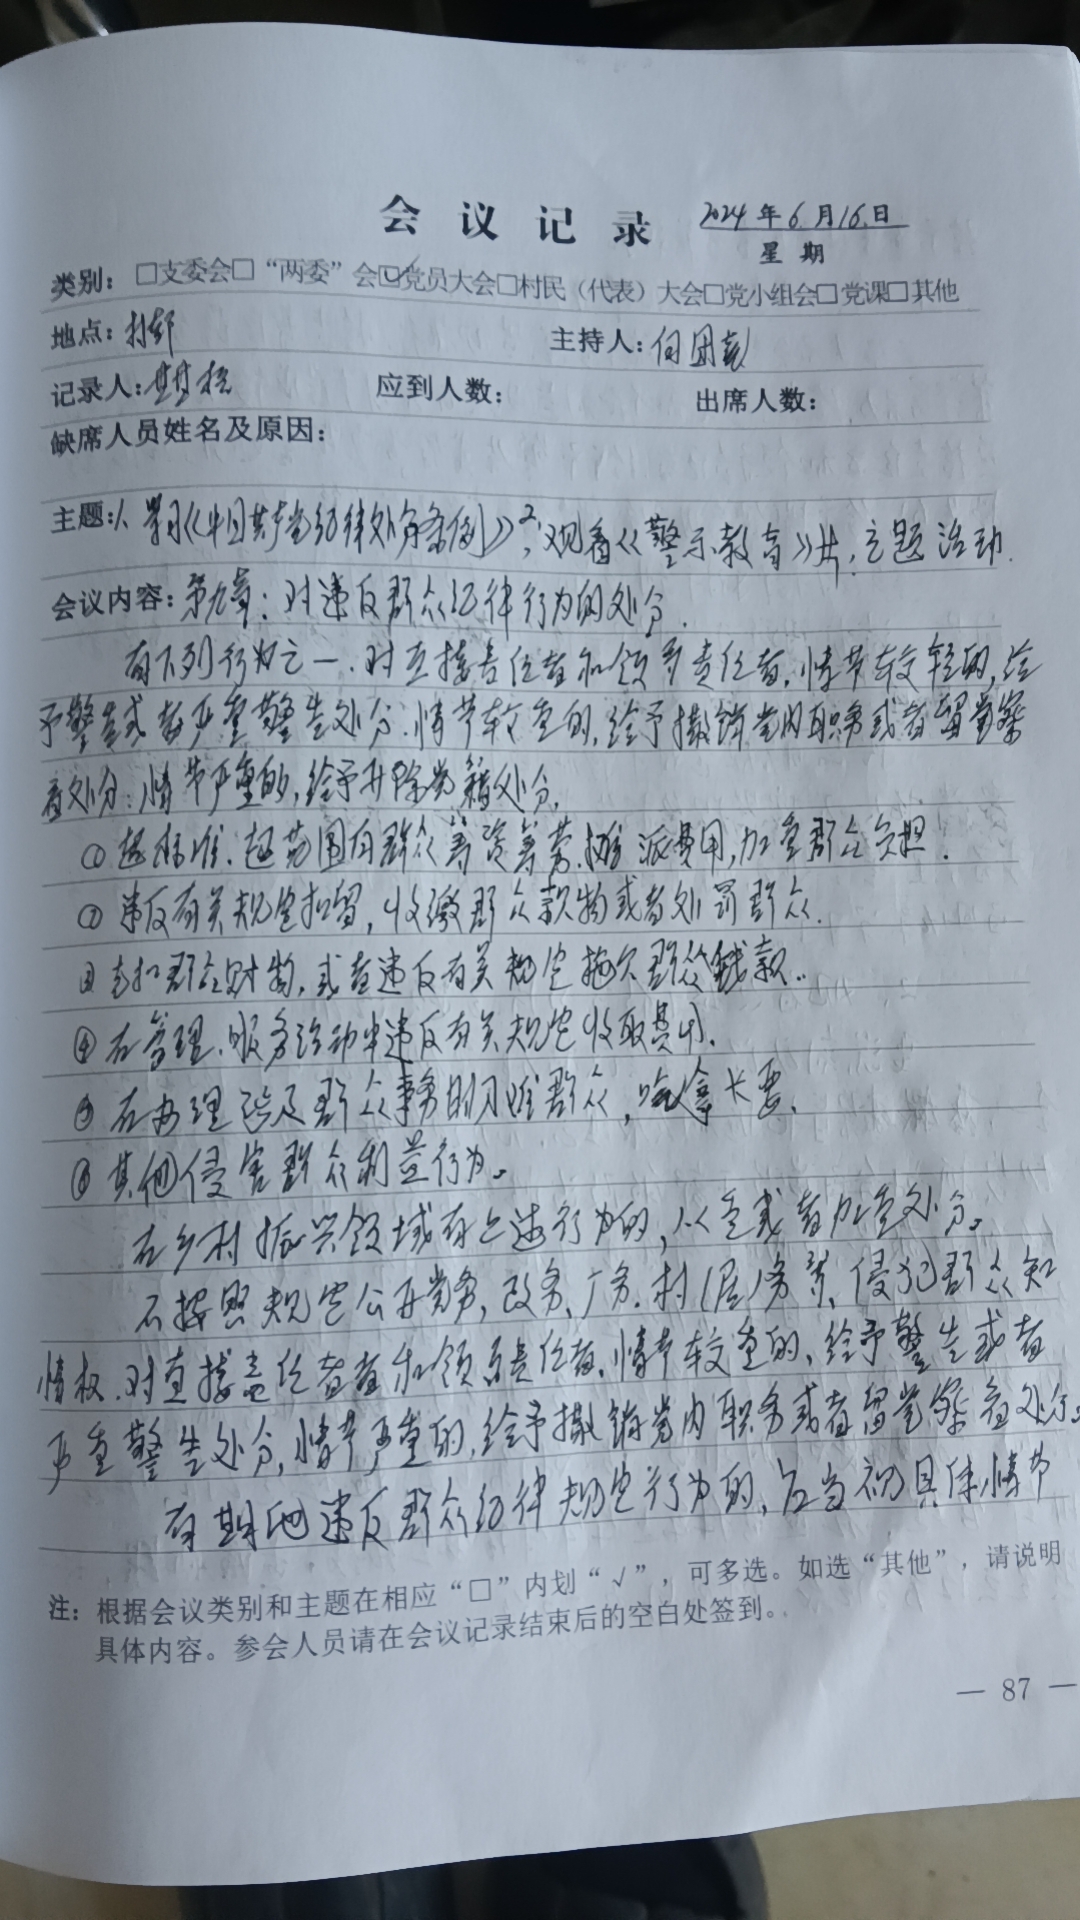 会议记录 2024年6月16日
星期
类别：□支委会□“两委”会☑党员大会□村民（代表）大会□党小组会□党课□其他
地点：村部 主持人：何国彪
记录人： 应到人数： 出席人数：
缺席人员姓名及原因：
主题：1、学习《中国共产党纪律处分条例》2、观看《警示教育》片，主题活动．
会议内容：第九章：对违反群众纪律行为的处分．
有下列行为之一．对直接责任者和领导责任者，情节较轻的，给
予警告或者严重警告处分．情节较重的，给予撤销党内职务或者留党察
看处分：情节严重的，给予开除党籍处分，
①超标准．超范围向群众筹资筹劳．摊派费用，加重群众负担．
②违反有关规定扣留，收缴群众款物或者处罚群众．
③克扣群众财物，或者违反有关规定拖欠群众钱款．．
④在管理．服务活动中违反有关规定收取费用．
⑤在办理涉及群众事务时刁难群众，吃拿卡要．
⑥其他侵害群众利益行为。
在乡村振兴领域有上述行为的，从重或者加重处分。
不按照规定公开党务，政务、厂务．村（居）务等，侵犯群众知
情权．对直接责任者者和领导责任者，情节较重的，给予警告或者
严重警告处分，情节严重的，给予撤销党内职务或者留党察看处分。
有其他违反群众纪律规定行为的，应当视具体情节
注：根据会议类别和主题在相应“□”内划“√”，可多选。如选“其他”，请说明
具体内容。参会人员请在会议记录结束后的空白处签到。
— 87 —